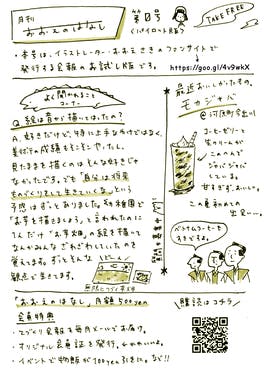 月刊
おおえのはなし
第0号
(パイロット版)
TAKE FREE
・本号は、イラストレーター・おおえさきのファンサイトで
発行する会報のお試し版です。
https://goo.gl/4v9wkX
よく聞かれること
コーナー
Q. 絵は昔から描いてたの?
A. 好きだけど、特に上手なわけではなく、
美術の成績もそこそこでした。
見たままを描くのはそんな好きじゃ
なかったです。でも「自分は将来
ものづくりをして生きていくな」という
予感はずっとありました。幼稚園で
「お芋を描きましょう」と言われたのに
1人だけ「お芋畑」の絵を描いて
なんかみんなざわざわしていたのを
覚えてます。ずっとそんな
観点で生きてます。
最近おいしかったもの。
モカジャバ
@河原町今出川
コーヒーゼリーと
生クリームが
このへんで
ジャバジャバ
している。
甘すぎず、おいしい。
この夏初めての
出会い…。
ベトナムコーヒーも
すきどすえ。
「おおえのはなし」月額500yen
会員特典
・てづくり会報を毎月メールでお届け。
・オリジナル会員証を発行。かわいいよ。
・イベントで物販が100yen引きに。など!!
購読はコチラ